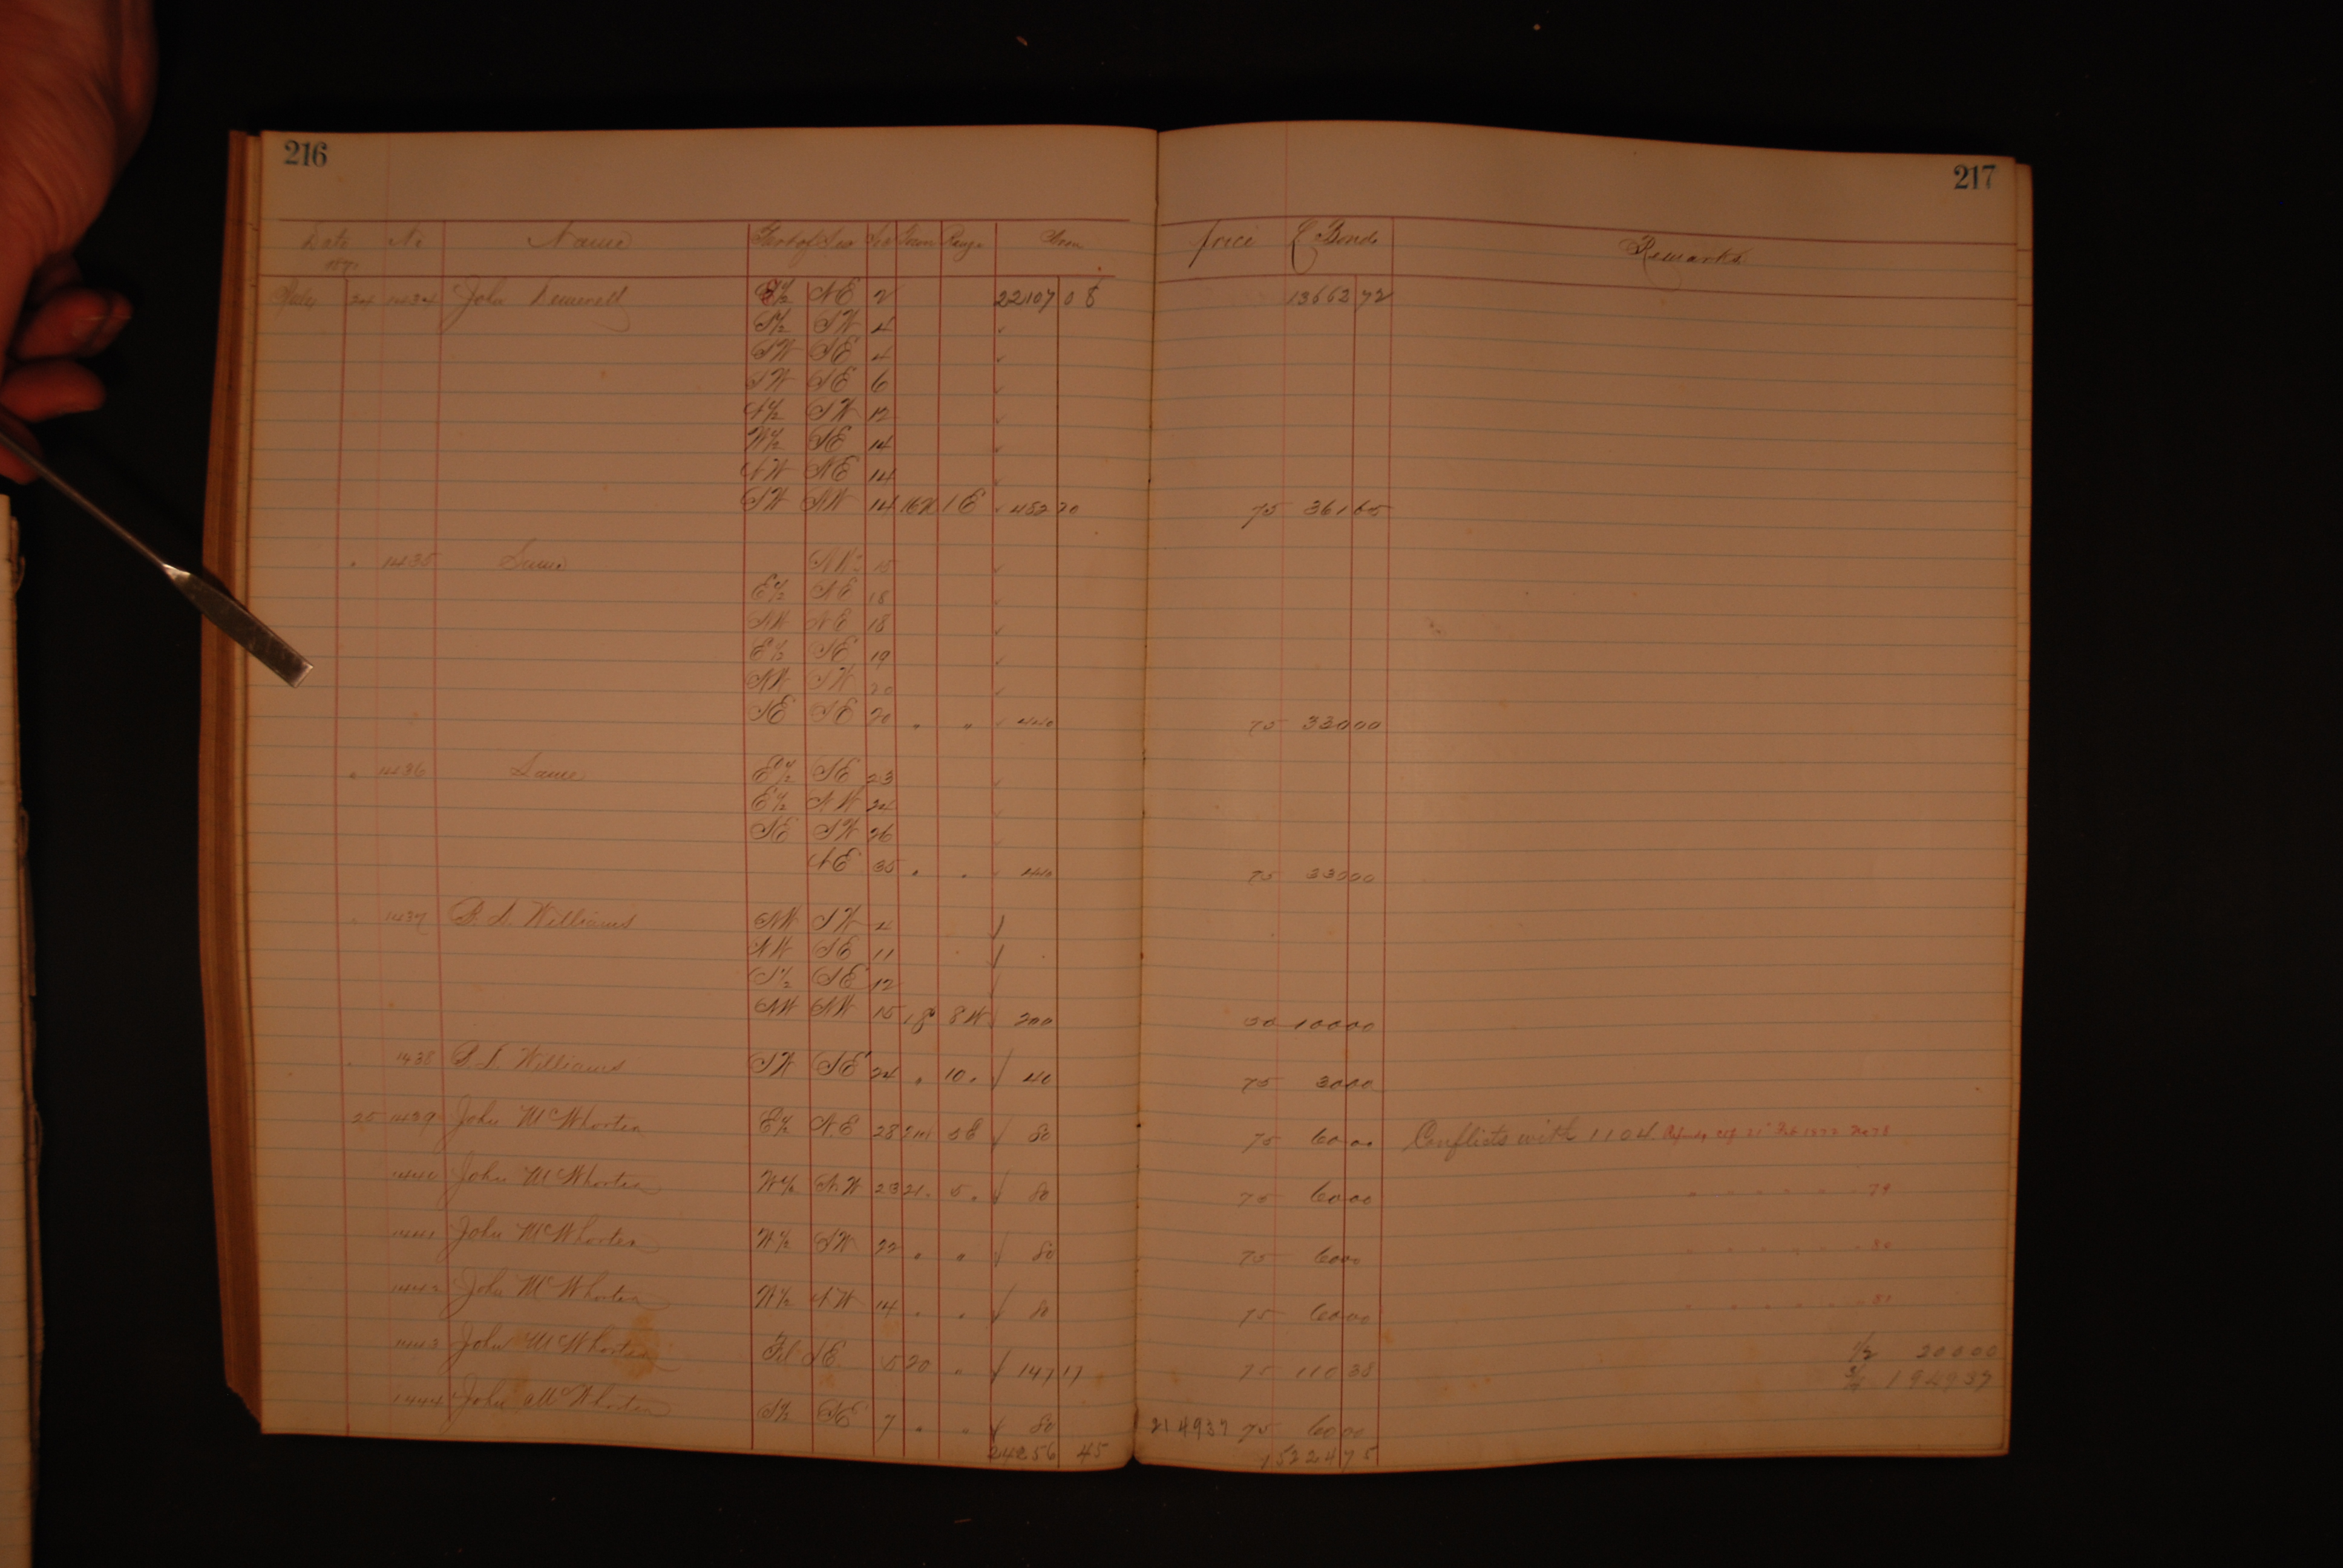 216
217
Date No Name Part of Sec Sec Town Range Area Price Bonds Remarks
1871
July 24 1434 John E½ NE 2 22107 08 13662 72
S½ SW 4
SW SE 4
SW SE 6
N½ SW 12
W½ SE 14
NW NE 14
SW NW 14 16N 1E 482 20 75 361 65
" 1435 Same NW 15
E½ NE 18
NW NE 18
E½ SE 19
NW SW 20
SE SE 20 " " 440 75 330 00
" 1436 Same E½ SE 23
E½ NW 24
SE SW 26
NE 35 " " 440 75 330 00
" 1437 Williams NW SW 4
NW SE 11
S½ SE 12
NW NW 15 18 8W 200 50 100 00
" 1438 Williams SW SE 24 " 10 " 40 75 30 00
25 1439 John McWhorter E½ N.E 28 21 5E 80 75 60 00 Conflicts with 1104. 1872 No 78
1440 John McWhorter W½ N.W 23 21 " 5 " 80 75 60 00 " " " " " " 79
1441 John McWhorter W½ SW 22 " " 80 75 60 00 " " " " " " 80
1442 John McWhorter W½ NW 14 " " 80 75 60 00 " " " " " " 81
1443 John McWhorter SE 5 20 " 147 17 75 110 38 ½ 200 00
¾ 1949 37
1444 John McWhorter S½ SE 7 " " 80 2149 37 75 60 00
24256 45 15224 75